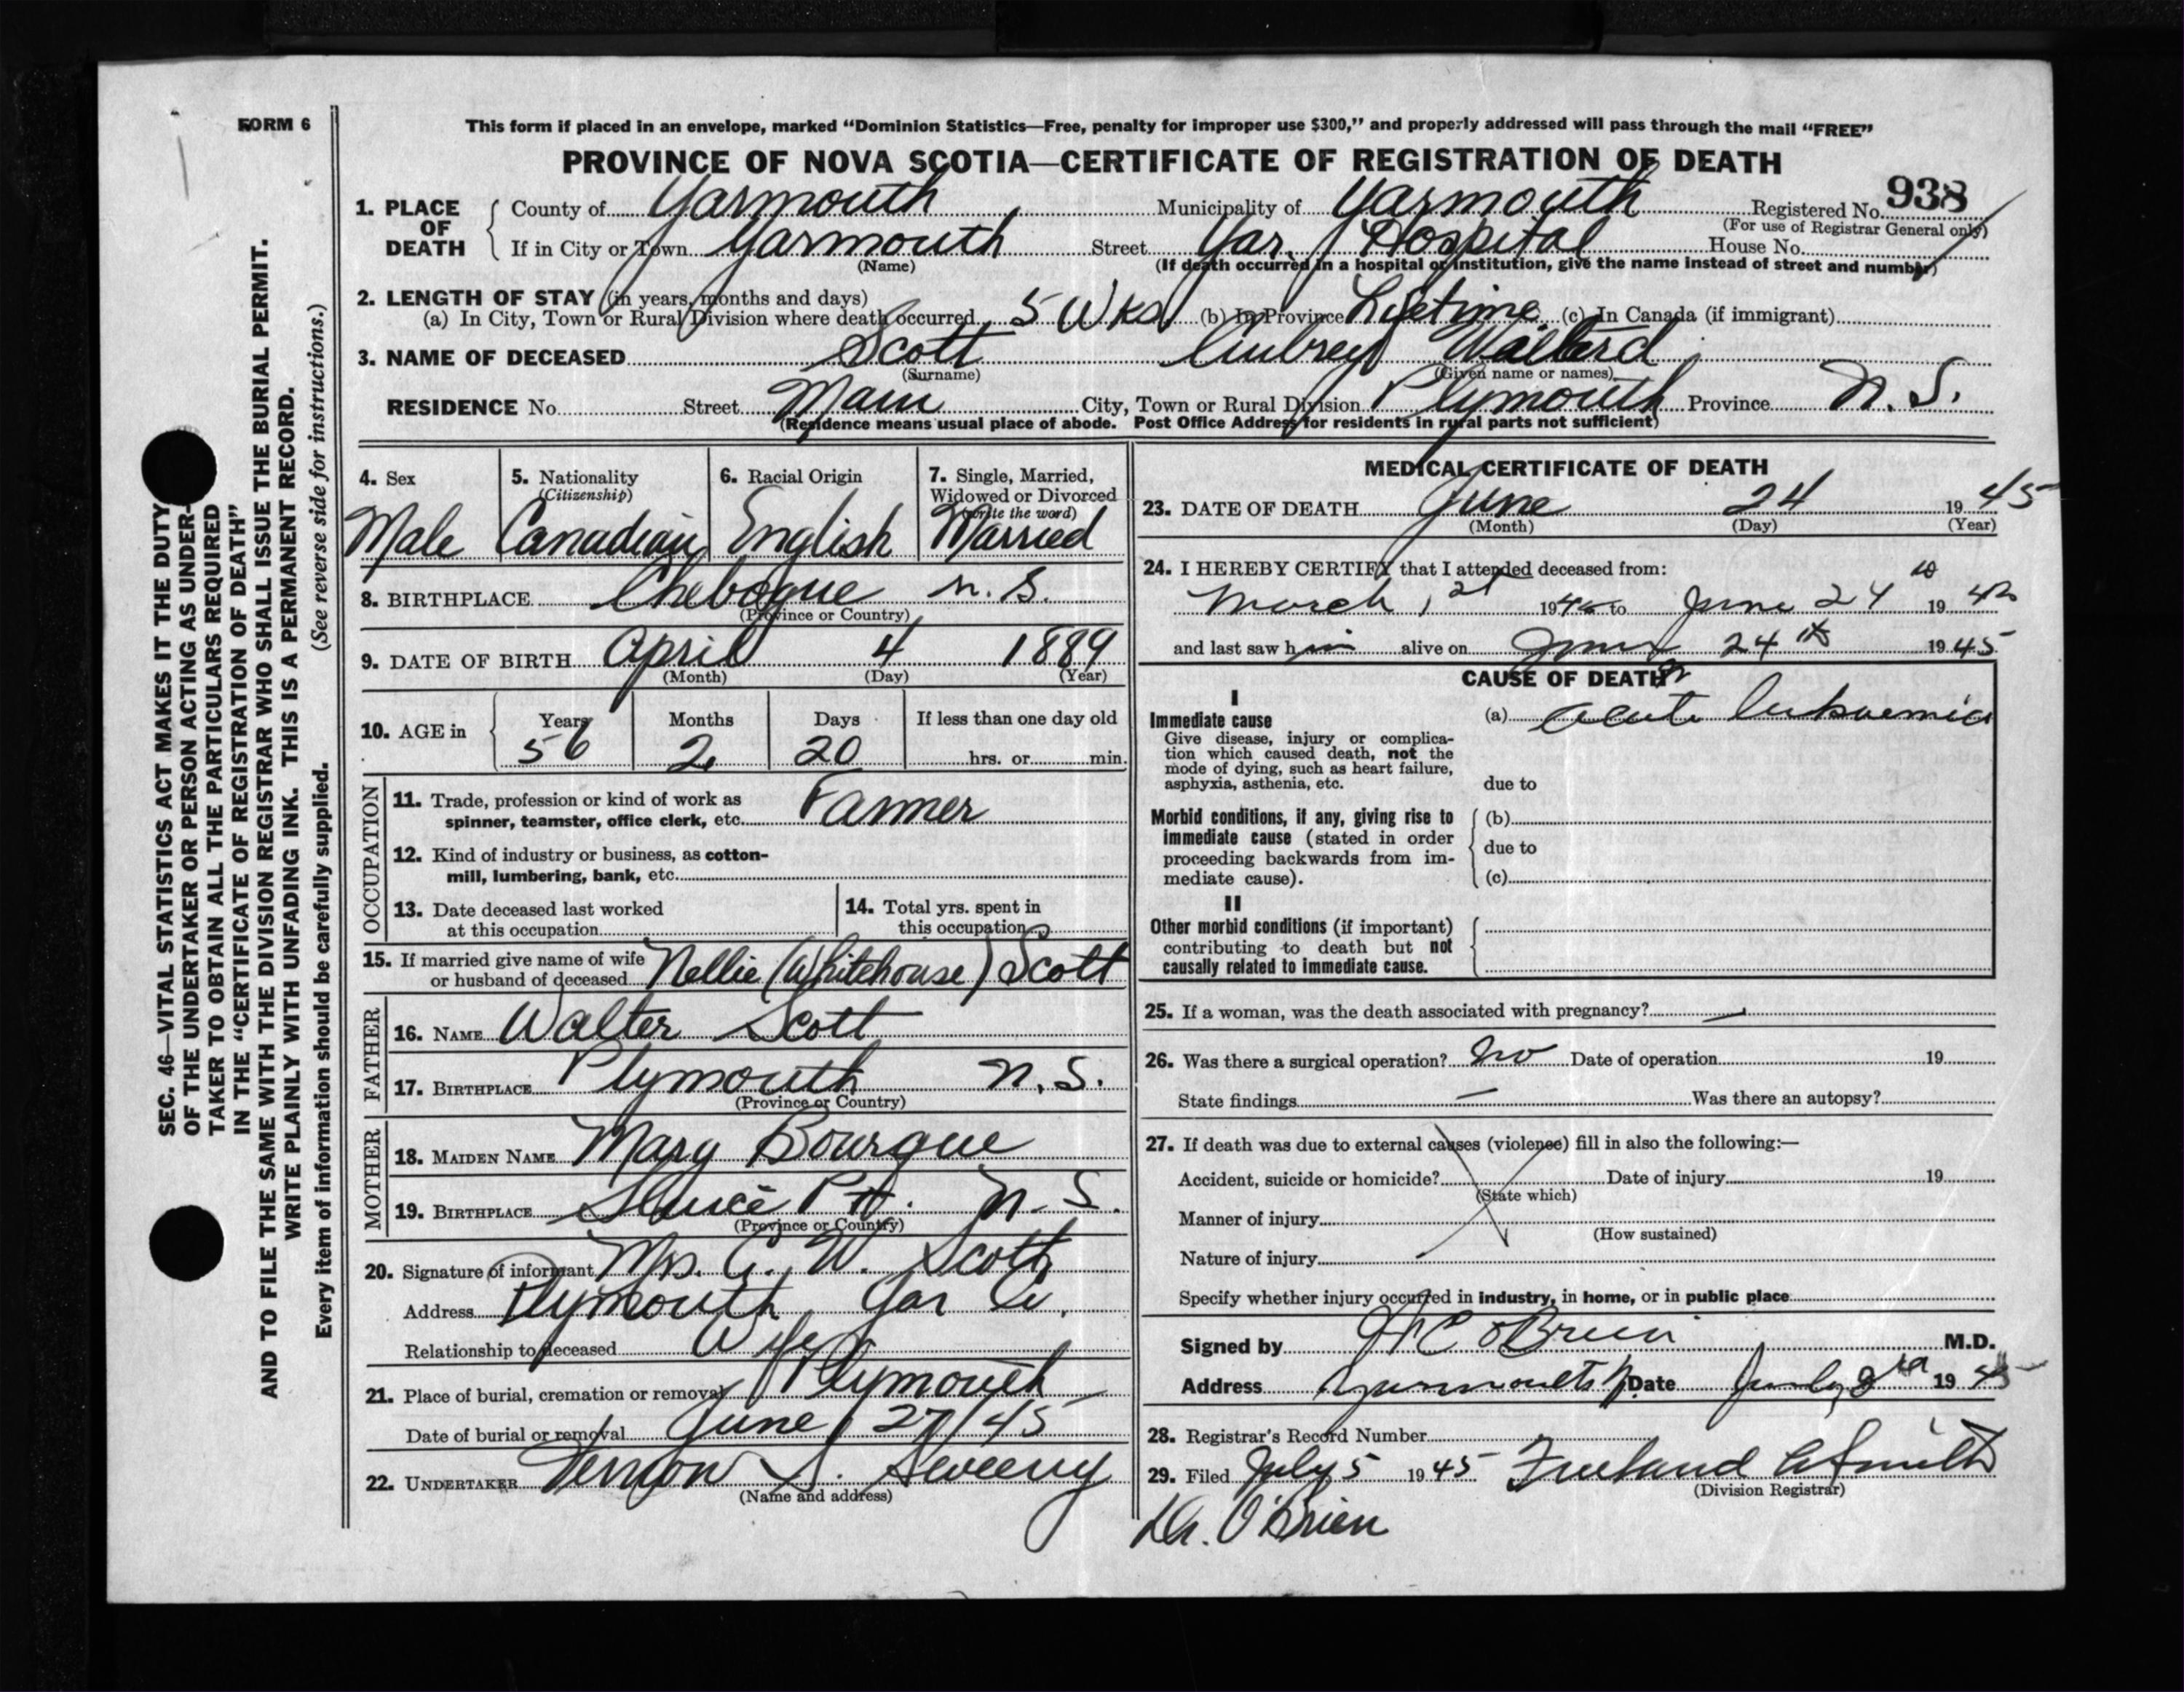 FORM 6
This form if placed in an envelope, marked "Dominion Statistics—Free, penalty for improper use $300," and properly addressed will pass through the mail "FREE"
PROVINCE OF NOVA SCOTIA—CERTIFICATE OF REGISTRATION OF DEATH
938
1. PLACE OF DEATH County of Yarmouth Municipality of Yarmouth Registered No.
(For use of Registrar General only)
If in City or Town Yarmouth Street Yar. Hospital House No.
(Name) (If death occurred in a hospital or institution, give the name instead of street and number)
2. LENGTH OF STAY (in years, months and days)
(a) In City, Town or Rural Division where death occurred 5 Wks (b) In Province Lifetime (c) In Canada (if immigrant)
3. NAME OF DECEASED Scott Aubrey
(Surname) (Given name or names)
RESIDENCE No. Street Main City, Town or Rural Division Plymouth Province N. S.
(Residence means usual place of abode. Post Office Address for residents in rural parts not sufficient)
4. Sex
Male
5. Nationality
(Citizenship)
Canadian
6. Racial Origin
English
7. Single, Married,
Widowed or Divorced
(write the word)
Married
8. BIRTHPLACE Chebogue N. S.
(Province or Country)
9. DATE OF BIRTH April 4 1889
(Month) (Day) (Year)
10. AGE in Years Months Days If less than one day old
56 2 20 hrs. or min.
OCCUPATION
11. Trade, profession or kind of work as
spinner, teamster, office clerk, etc. Farmer
12. Kind of industry or business, as cotton-
mill, lumbering, bank, etc.
13. Date deceased last worked
at this occupation
14. Total yrs. spent in
this occupation
15. If married give name of wife
or husband of deceased Nellie (Whitehouse) Scott
FATHER
16. NAME Walter Scott
17. BIRTHPLACE Plymouth N. S.
(Province or Country)
MOTHER
18. MAIDEN NAME Mary Bourque
19. BIRTHPLACE Sluice Pt. N. S.
(Province or Country)
20. Signature of informant Mrs. A. W. Scott
Address Plymouth, Yar Co.
Relationship to deceased Wife
21. Place of burial, cremation or removal Plymouth
Date of burial or removal June 27/45
22. UNDERTAKER Vernon S. Sweeny
(Name and address)
MEDICAL CERTIFICATE OF DEATH
23. DATE OF DEATH June 24 1945
(Month) (Day) (Year)
24. I HEREBY CERTIFY that I attended deceased from:
March 1st 1945 to June 24 1945
and last saw him alive on June 24th 1945
CAUSE OF DEATH
I
Immediate cause
Give disease, injury or complica-
tion which caused death, not the
mode of dying, such as heart failure,
asphyxia, asthenia, etc.
(a) Acute leukaemia
due to
Morbid conditions, if any, giving rise to
immediate cause (stated in order
proceeding backwards from im-
mediate cause).
(b)
due to
(c)
II
Other morbid conditions (if important)
contributing to death but not
causally related to immediate cause.
25. If a woman, was the death associated with pregnancy? —
26. Was there a surgical operation? No Date of operation 19
State findings — Was there an autopsy?
27. If death was due to external causes (violence) fill in also the following:—
Accident, suicide or homicide? Date of injury 19
(State which)
Manner of injury
(How sustained)
Nature of injury
Specify whether injury occurred in industry, in home, or in public place
Signed by O'Brien M.D.
Address Yarmouth Date July 1945
28. Registrar's Record Number
29. Filed July 5 1945 Smith
(Division Registrar)
Dr. O'Brien
SEC. 46—VITAL STATISTICS ACT MAKES IT THE DUTY
OF THE UNDERTAKER OR PERSON ACTING AS UNDER-
TAKER TO OBTAIN ALL THE PARTICULARS REQUIRED
IN THE "CERTIFICATE OF REGISTRATION OF DEATH"
AND TO FILE THE SAME WITH THE DIVISION REGISTRAR WHO SHALL ISSUE THE BURIAL PERMIT.
WRITE PLAINLY WITH UNFADING INK. THIS IS A PERMANENT RECORD.
Every item of information should be carefully supplied. (See reverse side for instructions.)